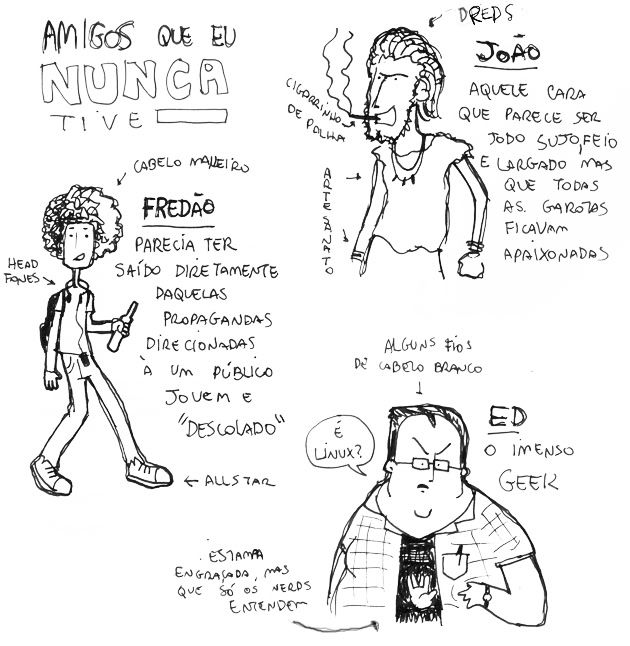 AMIGOS QUE EU
NUNCA
TIVE
DREDS
JOÃO
CIGARRINHO
DE PALHA
AQUELE CARA
QUE PARECE SER
TODO SUJO, FEIO
E LARGADO MAS
QUE TODAS
AS GAROTAS
FICAVAM
APAIXONADAS
ARTESANATO
CABELO MANEIRO
FREDÃO
HEAD
FONES
PARECIA TER
SAÍDO DIRETAMENTE
DAQUELAS
PROPAGANDAS
DIRECIONADAS
À UM PÚBLICO
JOVEM E
"DESCOLADO"
ALLSTAR
ALGUNS FIOS
DE CABELO BRANCO
ED
O IMENSO
GEEK
É
LINUX?
ESTAMPA
ENGRAÇADA, MAS
QUE SÓ OS NERDS
ENTENDEM